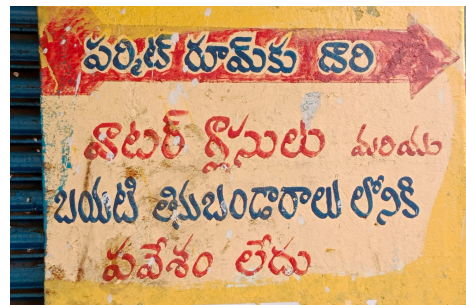 పర్మిట్ రూమ్‌కు దారి
వాటర్ గ్లాసులు మరియు
బయటి తినుబండారాలు లోనికి
ప్రవేశం లేదు